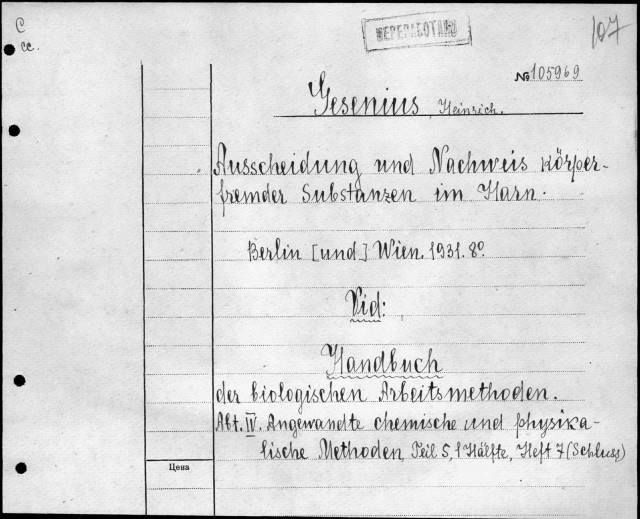 C
cc.
ПЕРЕРАБОТАНО
107
№ 105969
Gesenius, Heinrich.
Ausscheidung und Nachweis körper-
fremder Substanzen im Harn.
Berlin [und] Wien. 1931. 8º.
Vid:
Handbuch
der biologischen Arbeitsmethoden.
Abt. IV. Angewandte chemische und physika-
lische Methoden, Teil 5, 1 Hälfte, Heft 7 (Schluss)
Цена